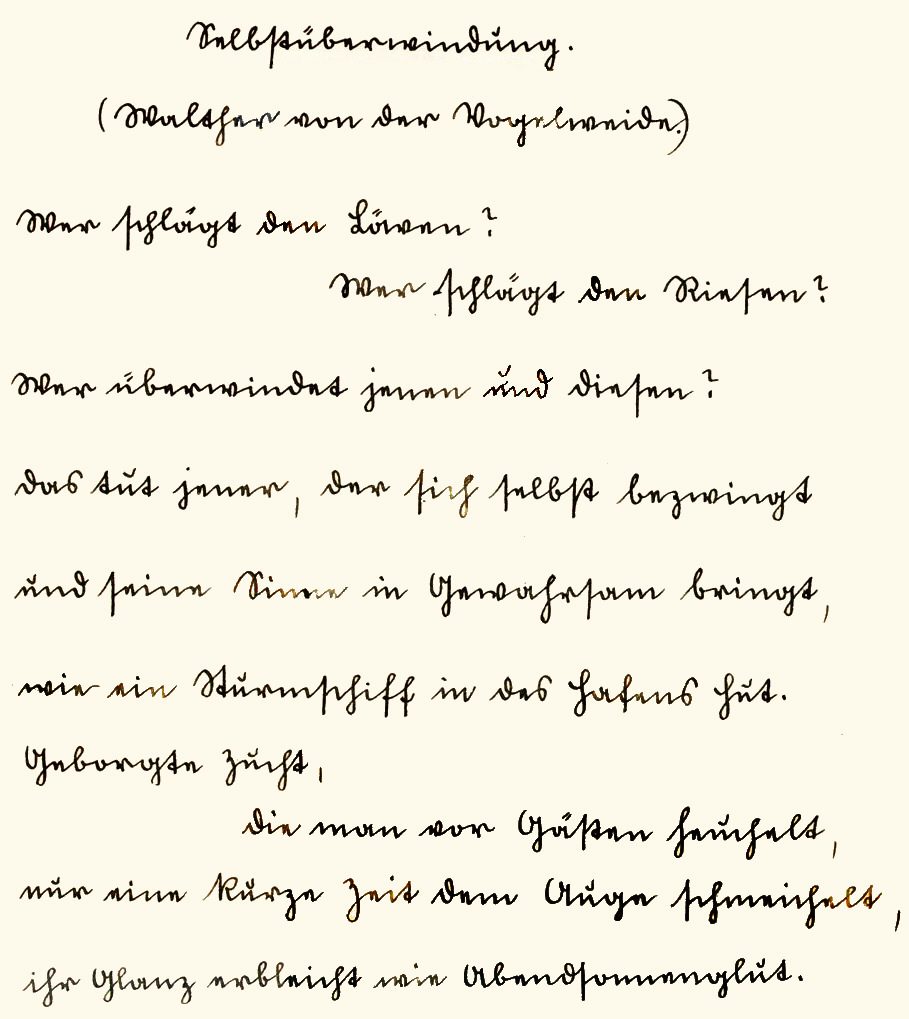 Selbstüberwindung.
(Walther von der Vogelweide.)
Wer schlägt den Löwen?
Wer schlägt den Riesen?
Wer überwindet jenen und diesen?
das tut jener, der sich selbst bezwingt
und seine Sinne in Gewahrsam bringt,
wie ein Sturmschiff in des Hafens Hut.
Geborgte Zucht,
die man vor Gästen heuchelt,
nur eine kurze Zeit dem Auge schmeichelt,
ihr Glanz erbleicht wie Abendsonnenglut.